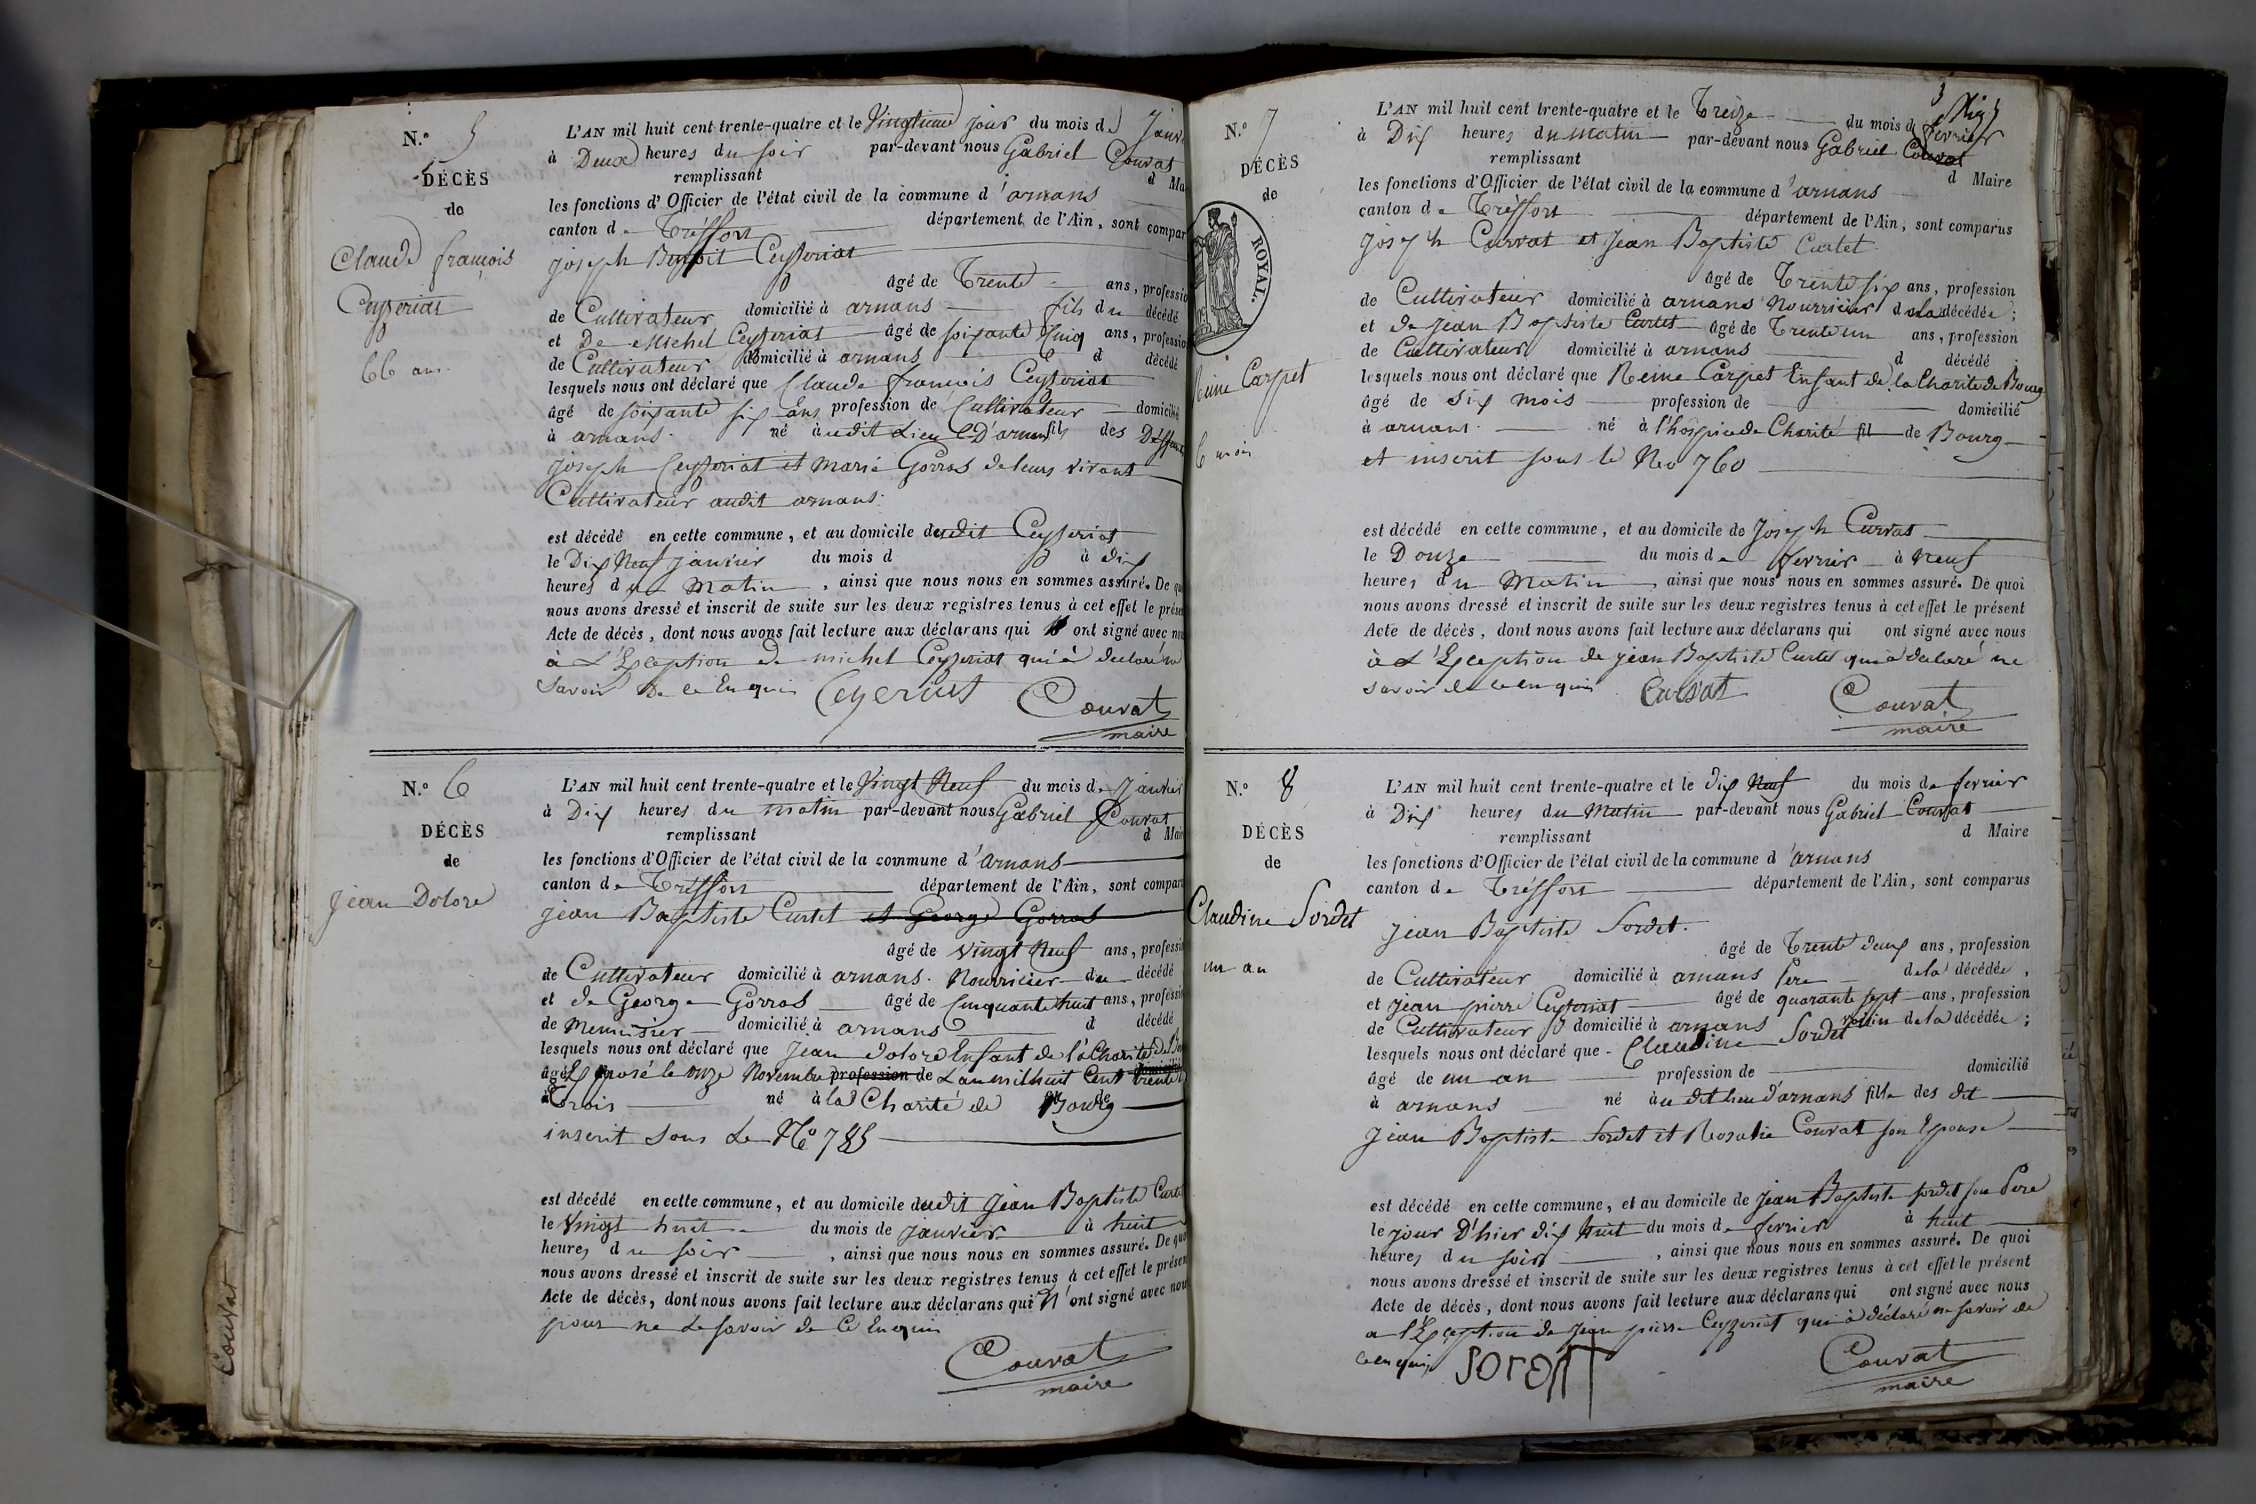 N.º 5
DÉCÈS
de
Claude françois
Ceyzeriat
66 ans.
L'AN mil huit cent trente-quatre et le Vingtieme jour du mois de Janv
à Deux heures du soir par-devant nous Gabriel Couvat
remplissant d Ma
les fonctions d'Officier de l'état civil de la commune d'arnans
canton de Tréffort département de l'Ain, sont compar
joseph Benoit Ceyzeriat
âgé de Trente ans, professio
de Cultivateur domicilié à arnans fils du décédé
et De Michel Ceyzeriat âgé de soixante Cinq ans, professio
de Cultivateur domicilié à arnans d décédé
lesquels nous ont déclaré que Claude françois Ceyzeriat
âgé de soixante six ans profession de Cultivateur domicilié
à arnans. né àudit Lieu D'arnans fils des Deffunts
joseph Ceyzeriat et Marie Gorras de leurs vivant
Cultivateur audit arnans.
est décédé en cette commune, et au domicile dudit Ceyzeriat
le Dix Neuf janvier du mois d à dix
heures du Matin, ainsi que nous nous en sommes assuré. De qu
nous avons dressé et inscrit de suite sur les deux registres tenus à cet effet le prése
Acte de décès, dont nous avons fait lecture aux déclarans qui ont signé avec no
à L'Exception de michel Ceyzeriat qui à declaré ne
savoir De ce Enquis Ceyeriat Couvat
maire
N.º 6
DÉCÈS
de
Jean Dolore
L'AN mil huit cent trente-quatre et le Vingt Neuf du mois de Janvier
à Dix heures du matin par-devant nous Gabriel Couvat
remplissant d Mair
les fonctions d'Officier de l'état civil de la commune d'arnans
canton de Tréffort département de l'Ain, sont compar
jean Baptiste Curtet et George Gorras
âgé de vingt Neuf ans, professi
de Cultivateur domicilié à arnans. Nourricier du décédé
et de George Gorras âgé de Cinquante huit ans, professi
de Menuisier domicilié à arnans d décédé
lesquels nous ont déclaré que Jean dolore Enfant de la Charité de Bo
âgé Exposé le onze Novembre profession de L'an mil huit Cent trente domicilié
à Trois né à la Charité de Bourg de
inscrit sous Le No 785
est décédé en cette commune, et au domicile dudit Jean Baptiste Curtet
le Vingt huit du mois de janvier à huit
heures du soir, ainsi que nous nous en sommes assuré. De quo
nous avons dressé et inscrit de suite sur les deux registres tenus à cet effet le présen
Acte de décès, dont nous avons fait lecture aux déclarans qui N'ont signé avec nou
pour ne Le savoir de Ce Enquis
Couvat
maire
Couvat
3
N.º 7
DÉCÈS
de
ROYAL.
Reine Carpet
6 mois
L'AN mil huit cent trente-quatre et le Treize du mois d fevrier
à Dix heures du matin par-devant nous Gabriel Couvat
remplissant d Maire
les fonctions d'Officier de l'état civil de la commune d'arnans
canton de Tréffort département de l'Ain, sont comparus
Joseph Curvat et Jean Baptiste Curtet
âgé de Trente six ans, profession
de Cultivateur domicilié à arnans Nourricier de la décédée;
et de jean Baptiste Curtet âgé de Trente un ans, profession
de Cultivateur domicilié à arnans d décédé
lesquels nous ont déclaré que Reine Carpet Enfant de la Charité de Bourg
âgé de six mois profession de domicilié
à arnans. né à l'hospice de Charité fil de Bourg
et inscrit sous le No 760
est décédé en cette commune, et au domicile de Joseph Curvat
le Douze du mois de fevrier à neuf
heures du Matin, ainsi que nous nous en sommes assuré. De quoi
nous avons dressé et inscrit de suite sur les deux registres tenus à cet effet le présent
Acte de décès, dont nous avons fait lecture aux déclarans qui ont signé avec nous
à L'Exception de jean Baptiste Curtet qui à declaré ne
savoir de ce enquis Curvat Couvat
maire
N.º 8
DÉCÈS
de
Claudine Sordet
un an
L'AN mil huit cent trente-quatre et le dix Neuf du mois de fevrier
à Dix heures du Matin par-devant nous Gabriel Couvat
remplissant d Maire
les fonctions d'Officier de l'état civil de la commune d'arnans
canton de Tréffort département de l'Ain, sont comparus
Jean Baptiste Sordet.
âgé de Trente deux ans, profession
de Cultivateur domicilié à arnans Pere de la décédée,
et jean pierre Ceyzeriat âgé de quarante sept ans, profession
de Cultivateur domicilié à arnans voisin de la décédée;
lesquels nous ont déclaré que Claudine Sordet
âgé de un an profession de domicilié
à arnans né àu dit lieu d'arnans fille des dit
Jean Baptiste Sordet et Rosalie Couvat son Epouse
est décédé en cette commune, et au domicile de jean Baptiste sordet son Pere
le jour D'hier dix huit du mois de fevrier à huit
heures du soir, ainsi que nous nous en sommes assuré. De quoi
nous avons dressé et inscrit de suite sur les deux registres tenus à cet effet le présent
Acte de décès, dont nous avons fait lecture aux déclarans qui ont signé avec nous
a l'Exception de jean pierre Ceyzeriat qui à déclaré ne savoir de
ce enquis Sordet Couvat
maire